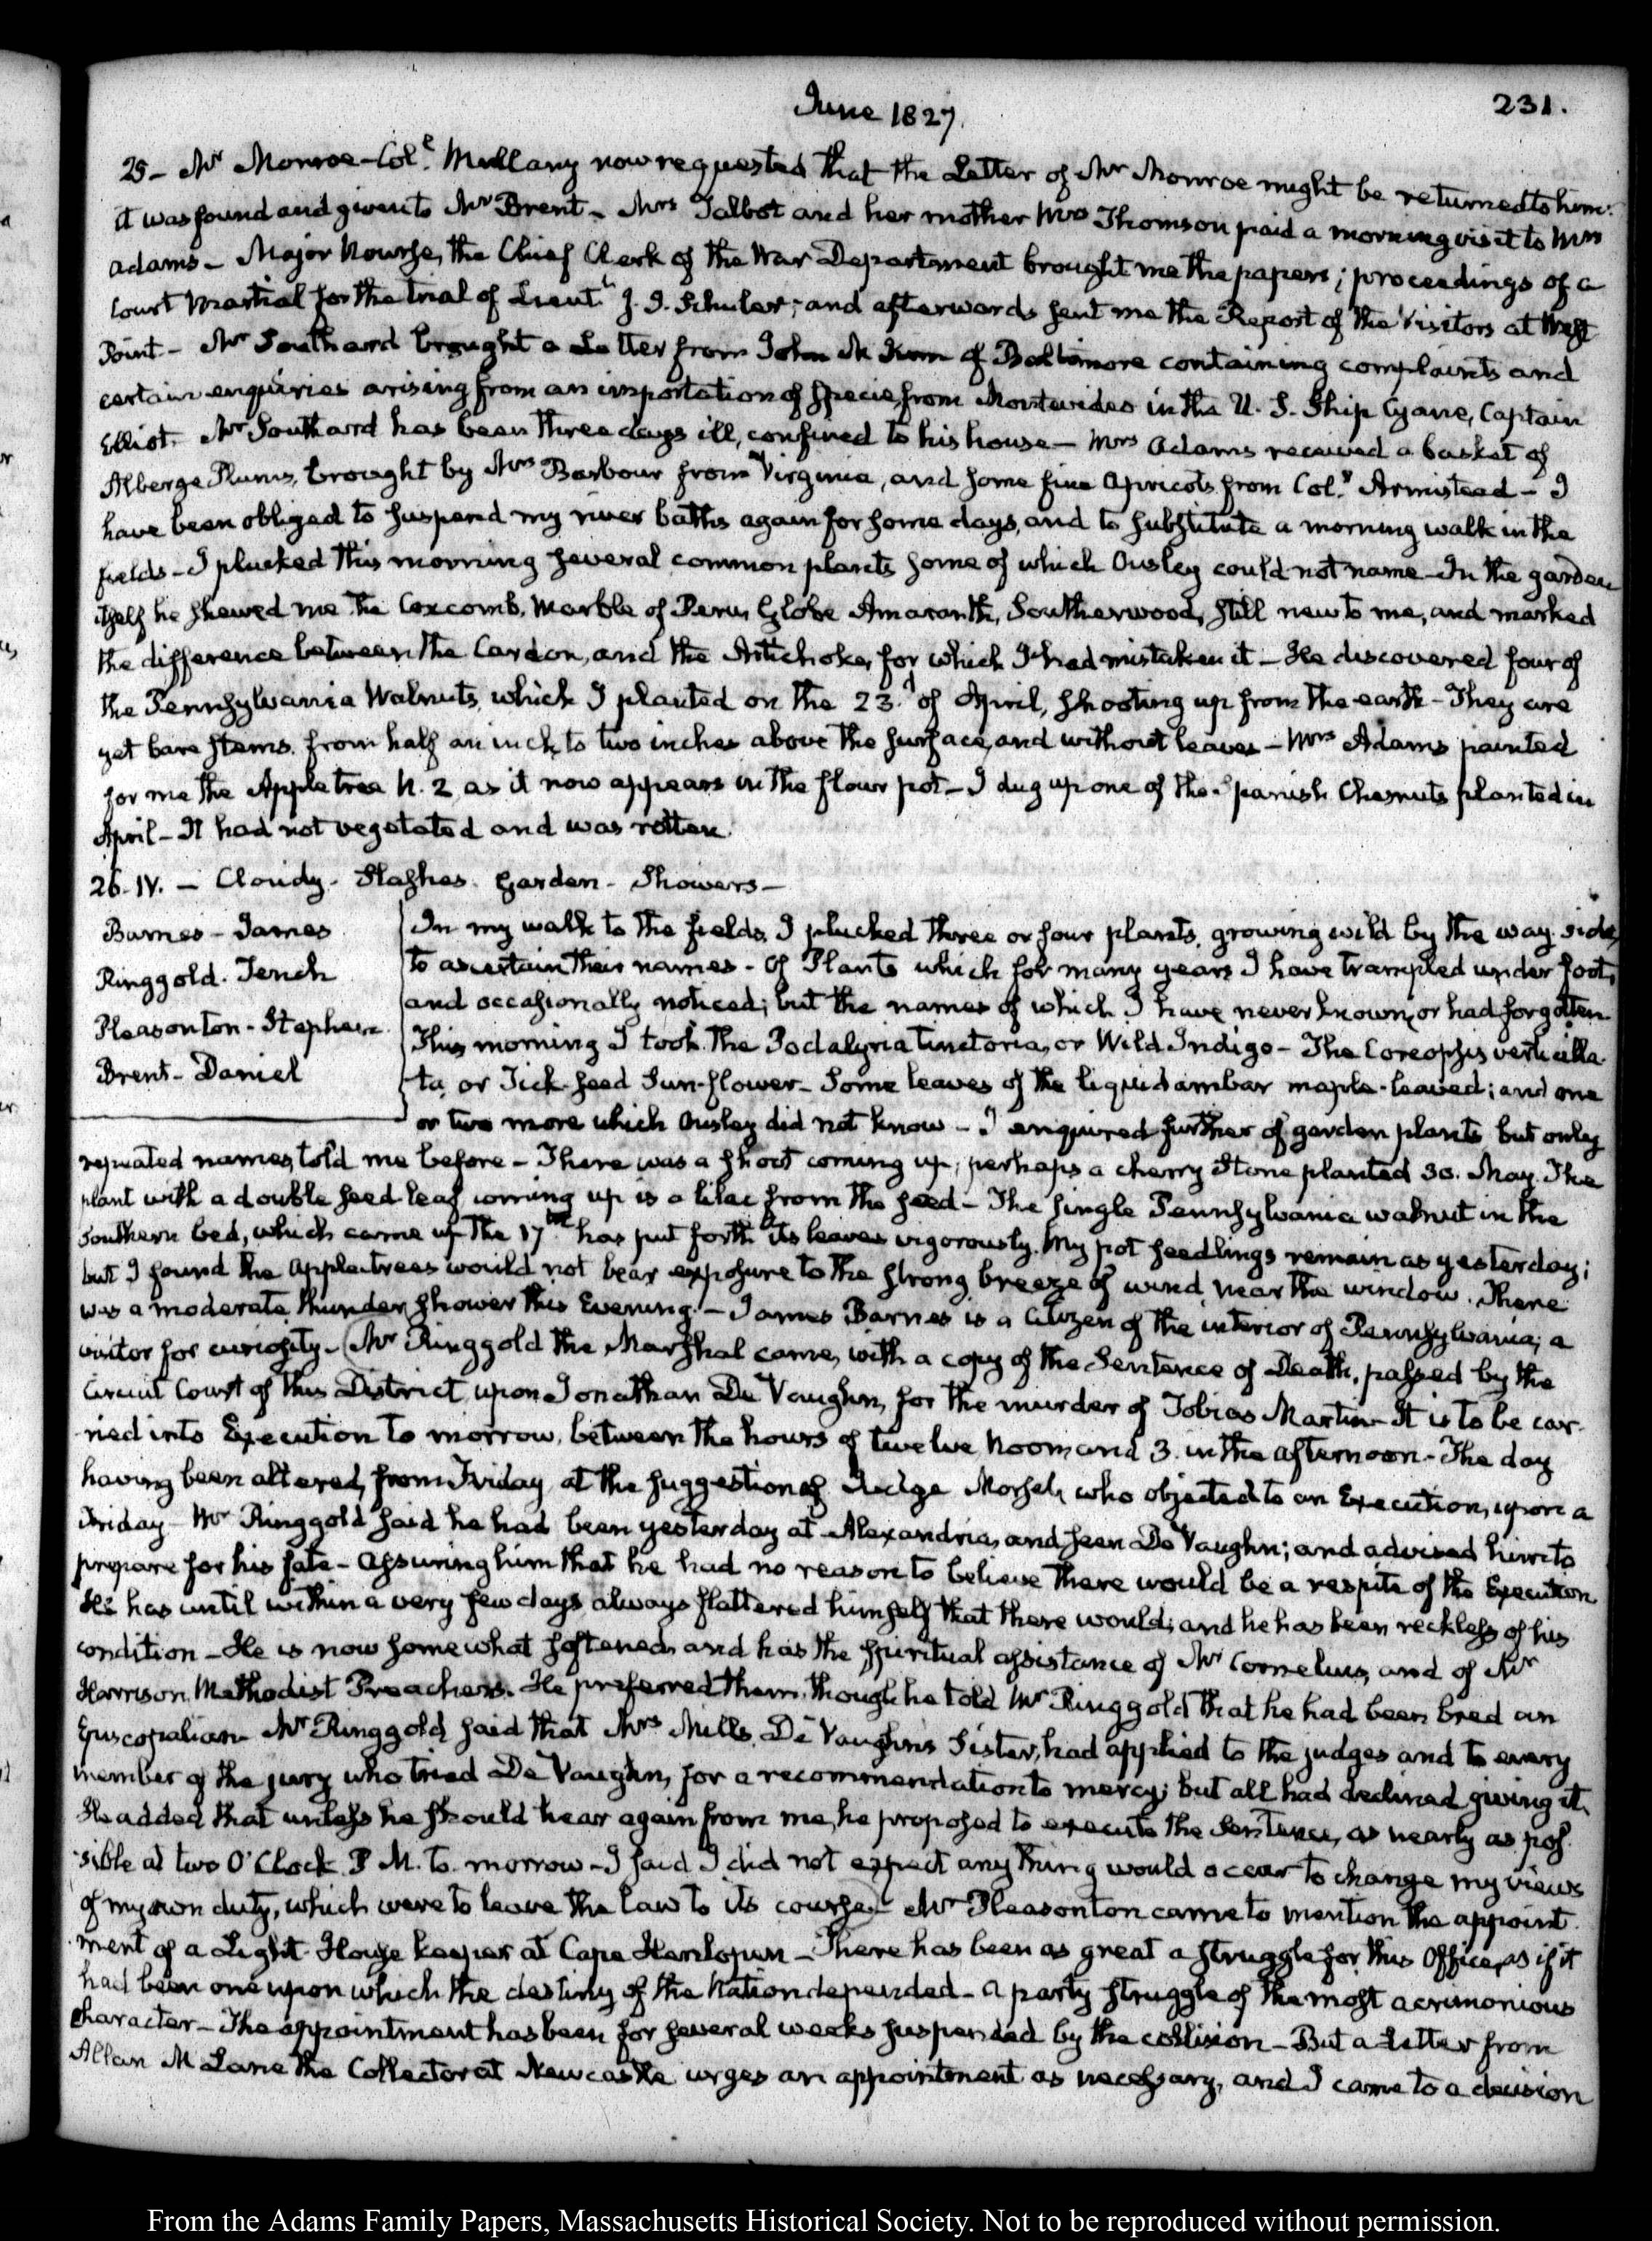 June 1827.
231.
25- Mr Monroe- Col. Mullany now requested that the Letter of Mr Monroe might be returned to him:
it was found and given to Mr Brent- Mrs Talbot and her mother Mrs Thomson paid a morning visit to Mrs
Adams- Major Nourse, the Chief Clerk of the War Department brought me the papers; proceedings of a
Court Martial for the trial of Lieutt J. I. Schuler; and afterwards sent me the Report of the Visitors at West
Point- Mr Southard brought a Letter from John M Kim of Baltimore containing complaints and
certain enquiries arising from an importation of Specie, from Montevideo in the U. S. Ship Cyane, Captain
Elliot. Mr Southard has been three days ill, confined to his house- Mrs Adams received a basket of
Alberge Plums, brought by Mrs Barbour from Virginia, and some fine Apricots from Col. Armistead- I
have been obliged to suspend my river baths again for some days, and to substitute a morning walk in the
fields- I plucked this morning several common plants some of which Ousley could not name- In the garden
itself he shewed me the Coxcomb, Marble of Peru, Globe Amaranth, Southerwood, still new to me, and marked
the difference between the Cardon, and the Artichoke, for which I had mistaken it- He discovered four of
the Pennsylvania Walnuts, which I planted on the 23.d of April, shooting up from the earth- They are
yet bare stems, from half an inch, to two inches above the surface, and without leaves- Mrs Adams painted
for me the Apple tree N. 2 as it now appears in the flour pot- I dug up one of the Spanish Chesnuts planted in
April- It had not vegetated and was rotten.
26. IV. - Cloudy- Flashes. Garden- Showers-
Barnes- James
Ringgold. Tench
Pleasonton- Stephen
Brent- Daniel
In my walk to the fields, I plucked three or four plants, growing wild by the way-side,
to ascertain their names- Of Plants which for many years I have trampled under foot,
and occasionally noticed; but the names of which I have never known, or had forgotten.
This morning I took the Podalyria tinctoria, or Wild Indigo- The Coreopsis verticilla-
ta, or Tick-seed Sun-flower- Some leaves of the liquidambar maple-leaved; and one
or two more which Ousley did not know- I enquired further of garden plants but only
repeated names, told me before- There was a shoot coming up; perhaps a cherry Stone planted 30. May. The
plant with a double seed-leaf coming up is a lilac from the seed- The single Pennsylvania walnut in the
Southern bed, which came up the 17th has put forth its leaves vigorously. My pot seedlings remain as yesterday;
but I found the Apple trees would not bear exposure to the strong breeze of wind near the window. There
was a moderate thunder shower this Evening- James Barnes is a Citizen of the interior of Pennsylvania; a
visitor for curiosity- Mr Ringgold the Marshal came, with a copy of the Sentence of Death, passed by the
Circuit Court of this District, upon Jonathan De Vaughn, for the murder of Tobias Martin- It is to be car-
ried into Execution to morrow, between the hours of twelve Noon, and 3. in the afternoon- The day
having been altered, from Friday, at the suggestion of Judge Morsel, who objected to an Execution, upon a
Friday- Mr Ringgold said he had been yesterday at Alexandria, and seen De Vaughn; and advised him to
prepare for his fate- Assuring him that he had no reason to believe there would be a respite of the Execution
He has until within a very few days always flattered himself that there would; and he has been reckless of his
condition- He is now somewhat softened, and has the spiritual assistance of Mr Cornelius, and of Mr
Harrison Methodist Preachers. He preferred them, though he told Mr Ringgold that he had been bred an
Episcopalian- Mr Ringgold said that Mrs Mills, De Vaughn's Sister, had applied to the judges and to every
member of the jury who tried De Vaughn, for a recommendation to mercy; but all had declined giving it.
He added that unless he should hear again from me, he proposed to execute the Sentence, as nearly as pos-
sible at two O'Clock P M. to morrow- I said I did not expect any thing would occur to change my views
of my own duty, which were to leave the law to its course- Mr Pleasonton came to mention the appoint-
ment of a Light-House keeper at Cape Henlopen- There has been as great a struggle for this Office, as if it
had been one upon which the destiny of the Nation depended- a party struggle of the most acrimonious
character- The appointment has been for several weeks suspended by the collision- But a Letter from
Allan M Lane the Collector at Newcastle urges an appointment as necessary, and I came to a decision
From the Adams Family Papers, Massachusetts Historical Society. Not to be reproduced without permission.